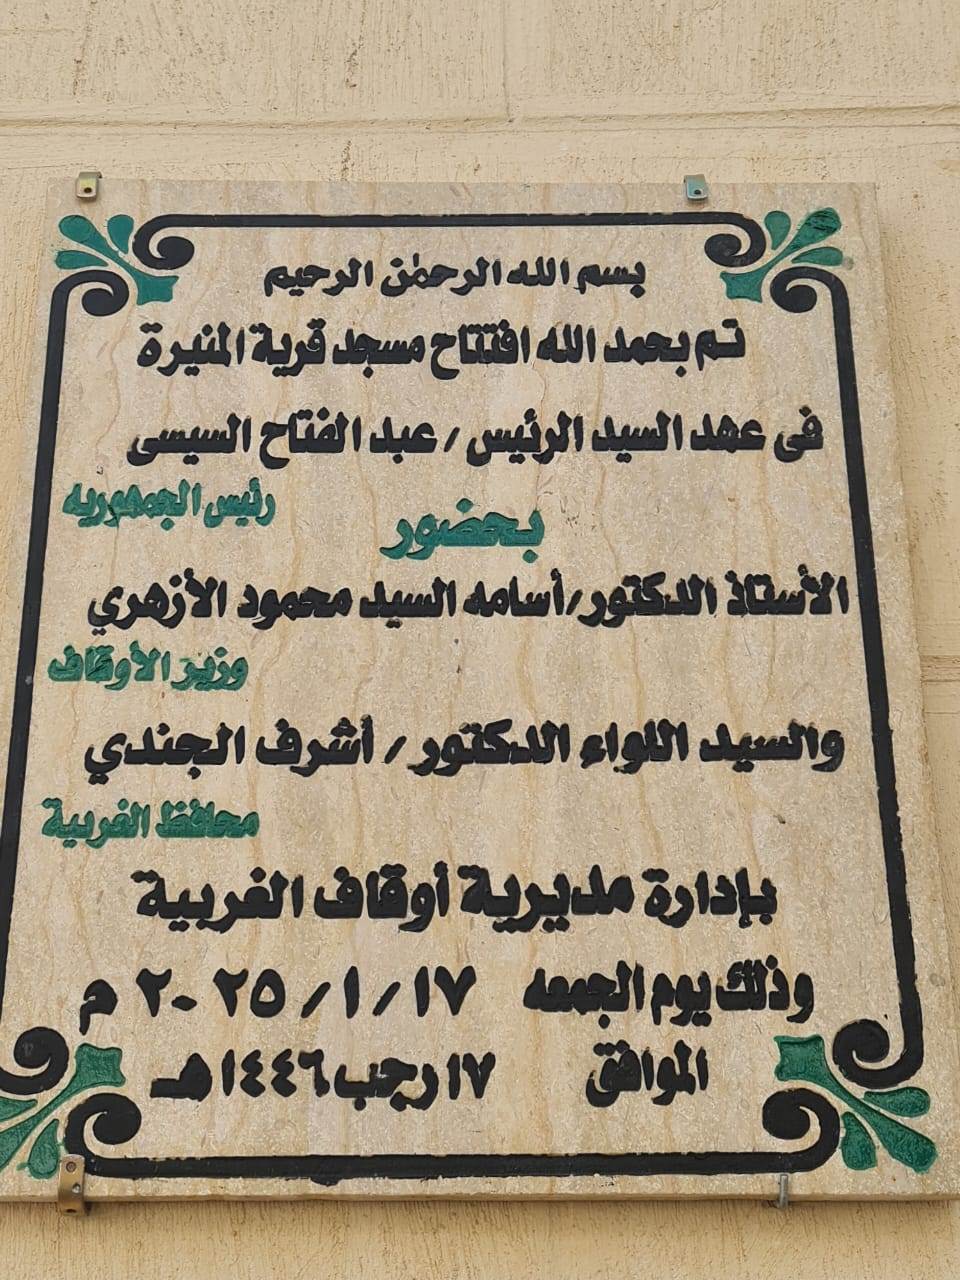 بسم الله الرحمٰن الرحيم
تم بحمد الله افتتاح مسجد قرية المنيرة
فى عهد السيد الرئيس / عبد الفتاح السيسى
رئيس الجمهوريه
بحضور
الأستاذ الدكتور/أسامه السيد محمود الأزهري
وزير الأوقاف
والسيد اللواء الدكتور / أشرف الجندي
محافظ الغربية
بإدارة مديرية أوقاف الغربية
وذلك يوم الجمعه ١٧ / ١ / ٢٠٢٥ م
الموافق ١٧ رجب ١٤٤٦هـ